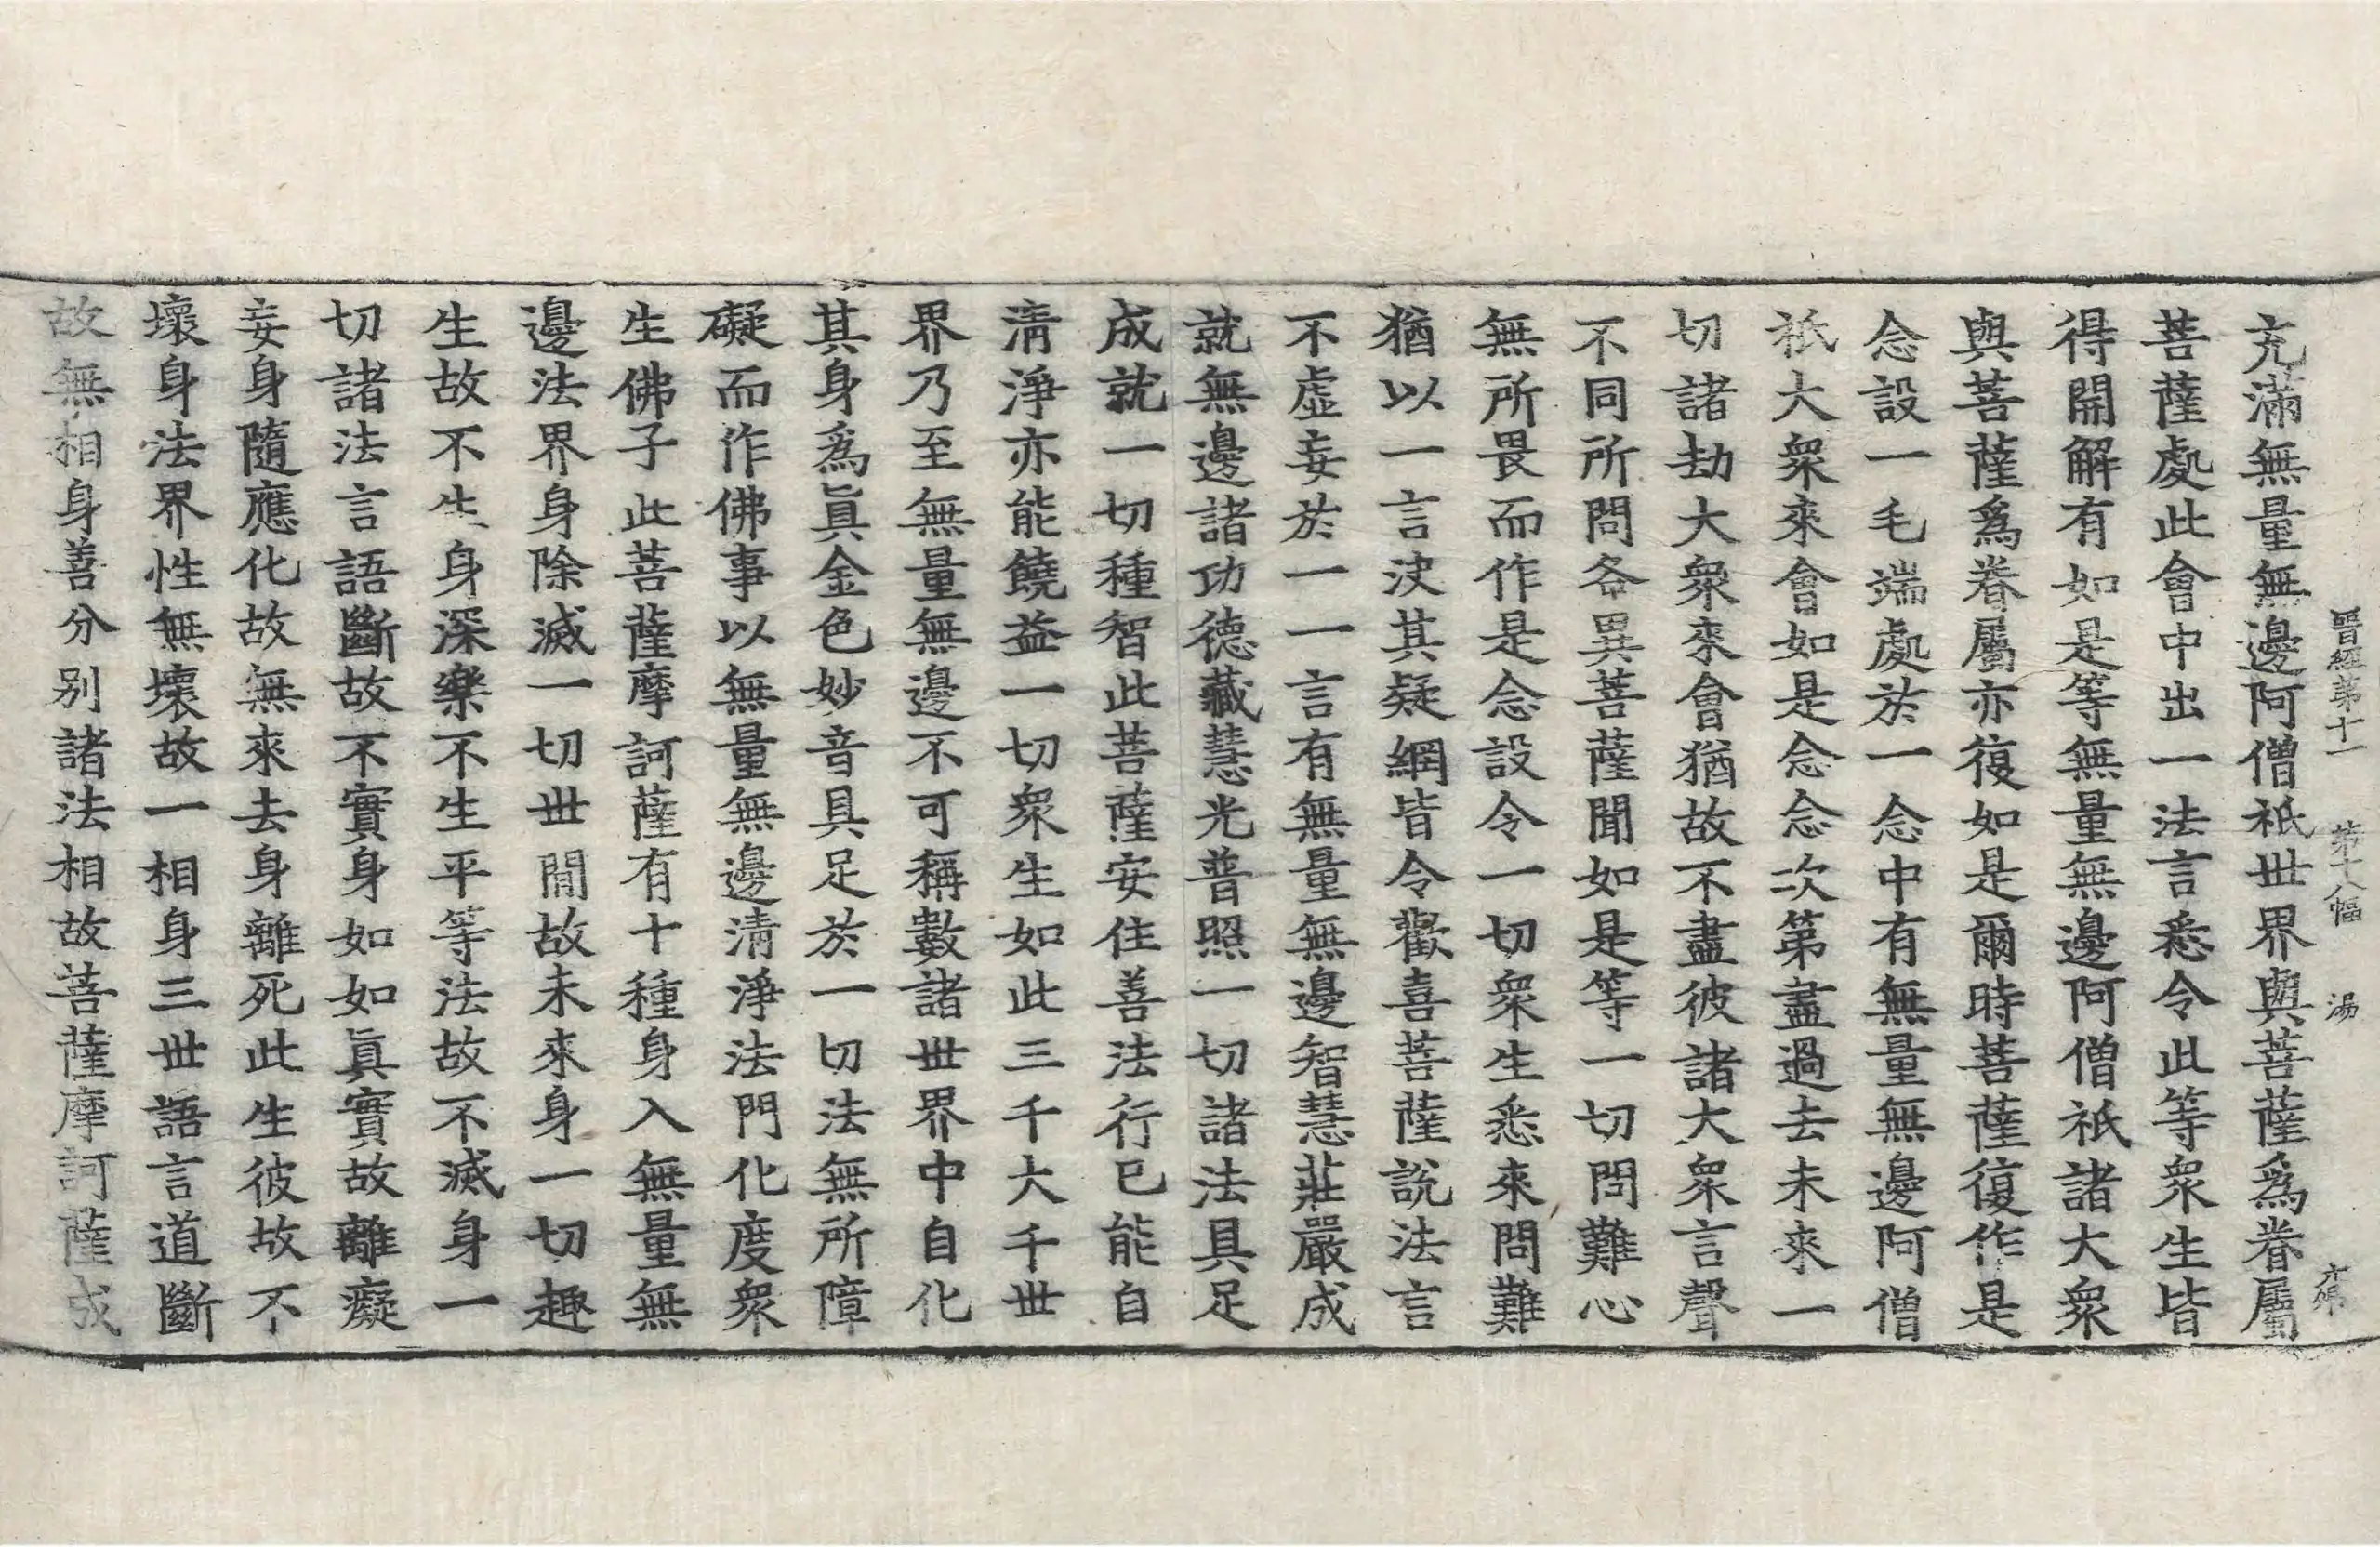 晉經第十一 第十八幅 湯
充滿無量無邊阿僧祇世界與菩薩爲眷屬
菩薩處此會中出一法言悉令此等衆生皆
得開解有如是等無量無邊阿僧祇諸大衆
與菩薩爲眷屬亦復如是爾時菩薩復作是
念設一毛端處於一念中有無量無邊阿僧
祇大衆來會如是念念次第盡過去未來一
切諸劫大衆來會猶故不盡彼諸大衆言聲
不同所問各異菩薩聞如是等一切問難心
無所畏而作是念設令一切衆生悉來問難
猶以一言決其疑網皆令歡喜菩薩說法言
不虛妄於一一言有無量無邊智慧莊嚴成
就無邊諸功德藏慧光普照一切諸法具足
成就一切種智此菩薩安住善法行已能自
清淨亦能饒益一切衆生如此三千大千世
界乃至無量無邊不可稱數諸世界中自化
其身爲眞金色妙音具足於一切法無所障
礙而作佛事以無量無邊清淨法門化度衆
生佛子此菩薩摩訶薩有十種身入無量無
邊法界身除滅一切世閒故未來身一切趣
生故不生身深樂不生平等法故不滅身一
切諸法言語斷故不實身如如眞實故離癡
妄身隨應化故無來去身離死此生彼故不
壞身法界性無壞故一相身三世語言道斷
故無相身善分别諸法相故菩薩摩訶薩成